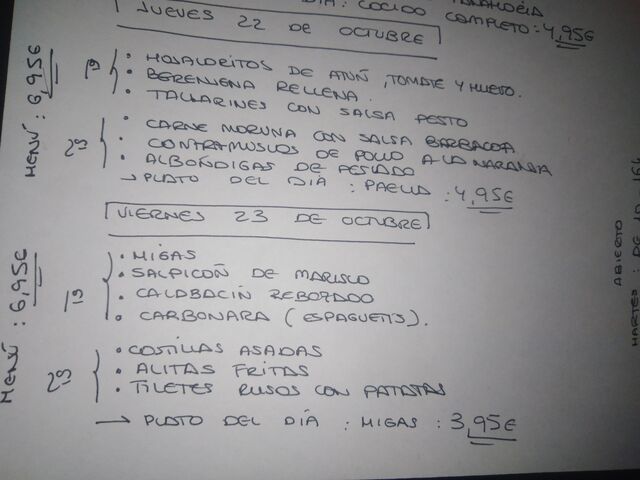 DÍA: COCIDO COMPLETO: 4,95€
JUEVES 22 DE OCTUBRE
MENÚ: 6,95€
1º
• HOJALDRITOS DE ATÚN, TOMATE Y HUEVO.
• BERENJENA RELLENA.
• TALLARINES CON SALSA PESTO
2º
• CARNE MORUNA CON SALSA BARBACOA
• CONTRAMUSLOS DE POLLO A LA NARANJA
• ALBÓNDIGAS DE PESCADO
→ PLATO DEL DÍA: PAELLA: 4,95€
VIERNES 23 DE OCTUBRE
MENÚ: 6,95€
1º
• MIGAS
• SALPICÓN DE MARISCO
• CALABACÍN REBOZADO
• CARBONARA (ESPAGUETIS).
2º
• COSTILLAS ASADAS
• ALITAS FRITAS
• FILETES RUSOS CON PATATAS
→ PLATO DEL DÍA: MIGAS: 3,95€
ABIERTO
MARTES: DE 10 16h